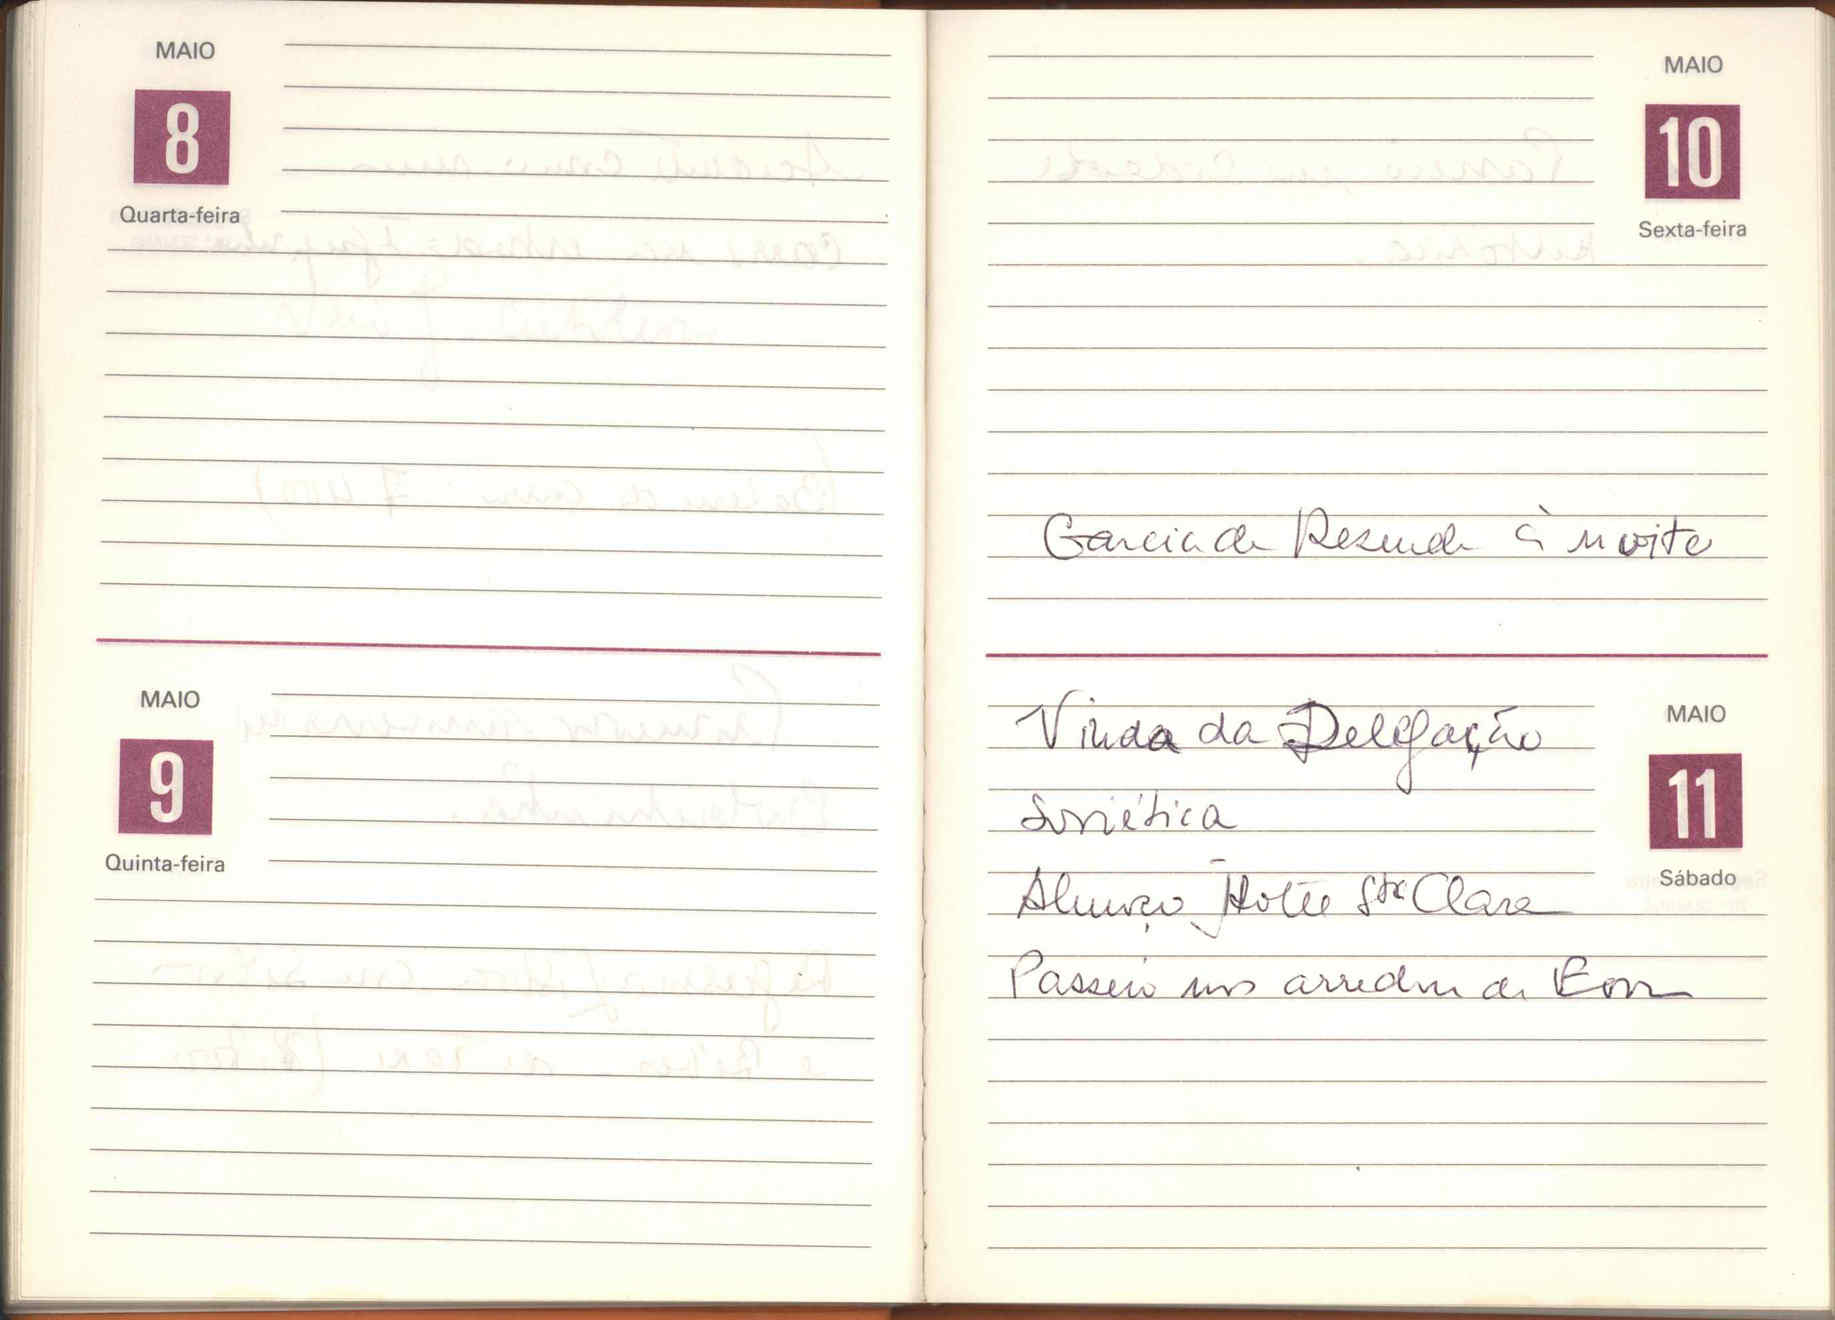 MAIO
8
Quarta-feira
MAIO
9
Quinta-feira
MAIO
10
Sexta-feira
Garcia de Resende à noite
Vinda da Delegação
Soviética
MAIO
11
Sábado
Almoço Hotel Stª Clara
Passeio nos arredores de